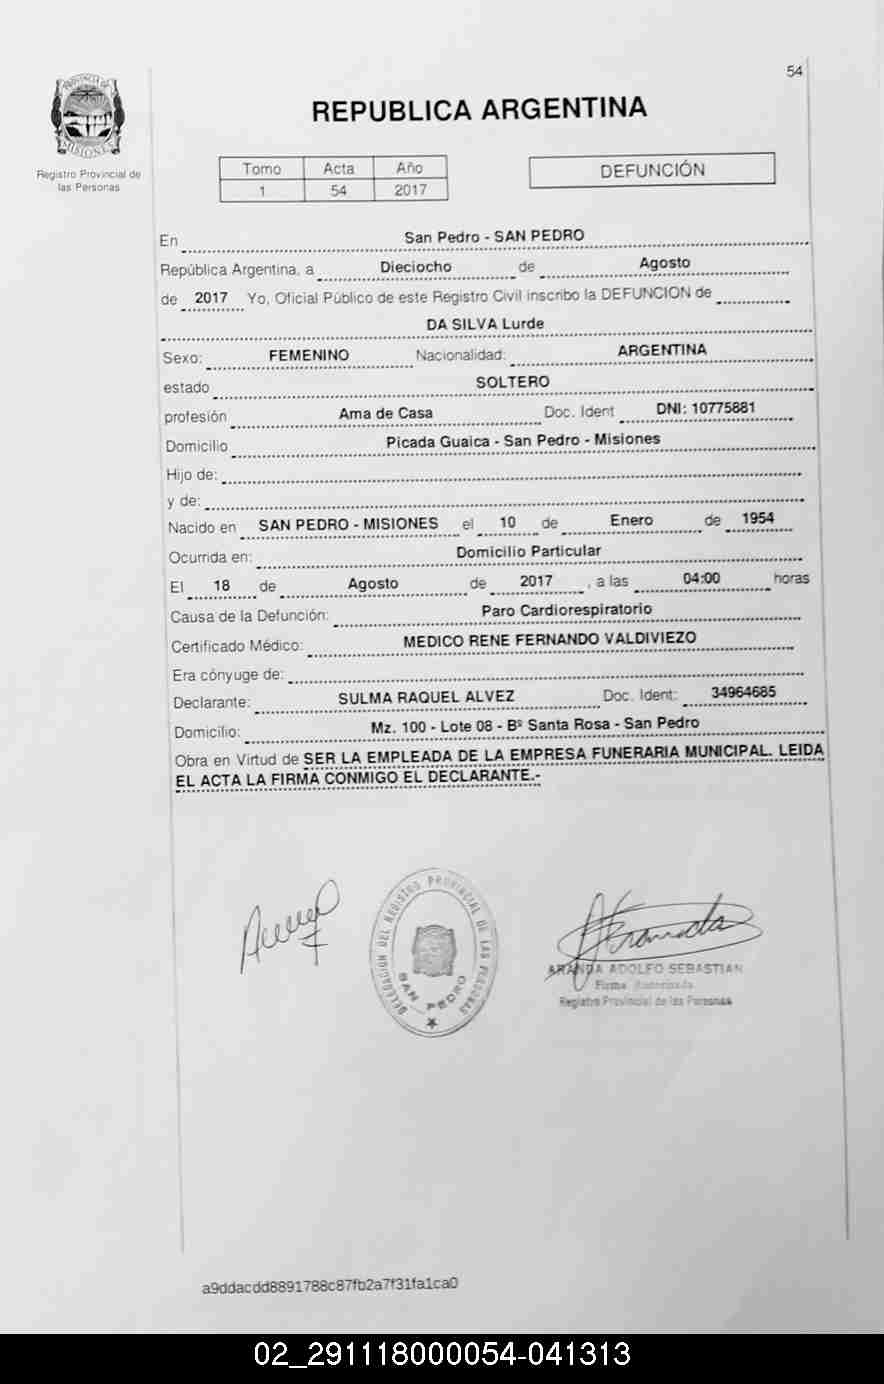 54
PROVINCIA DE
MISIONES
Registro Provincial de
las Personas
REPUBLICA ARGENTINA
Tomo Acta Año
1 54 2017
DEFUNCIÓN
En San Pedro - SAN PEDRO
República Argentina, a Dieciocho de Agosto
de 2017 Yo, Oficial Público de este Registro Civil inscribo la DEFUNCION de
DA SILVA Lurde
Sexo: FEMENINO Nacionalidad: ARGENTINA
estado SOLTERO
profesión Ama de Casa Doc. Ident DNI: 10775881
Domicilio Picada Guaica - San Pedro - Misiones
Hijo de:
y de:
Nacido en SAN PEDRO - MISIONES el 10 de Enero de 1954
Ocurrida en: Domicilio Particular
El 18 de Agosto de 2017, a las 04:00 horas
Causa de la Defunción: Paro Cardiorespiratorio
Certificado Médico: MEDICO RENE FERNANDO VALDIVIEZO
Era cónyuge de:
Declarante: SULMA RAQUEL ALVEZ Doc. Ident: 34964685
Domicilio: Mz. 100 - Lote 08 - Bº Santa Rosa - San Pedro
Obra en Virtud de SER LA EMPLEADA DE LA EMPRESA FUNERARIA MUNICIPAL. LEIDA
EL ACTA LA FIRMA CONMIGO EL DECLARANTE.-
DELEGACION DEL REGISTRO PROVINCIAL DE LAS PERSONAS
SAN PEDRO
ARANDA ADOLFO SEBASTIAN
Firma Autorizada
Registro Provincial de las Personas
a9ddacdd8891788c87fb2a7f31fa1ca0
02_291118000054-041313